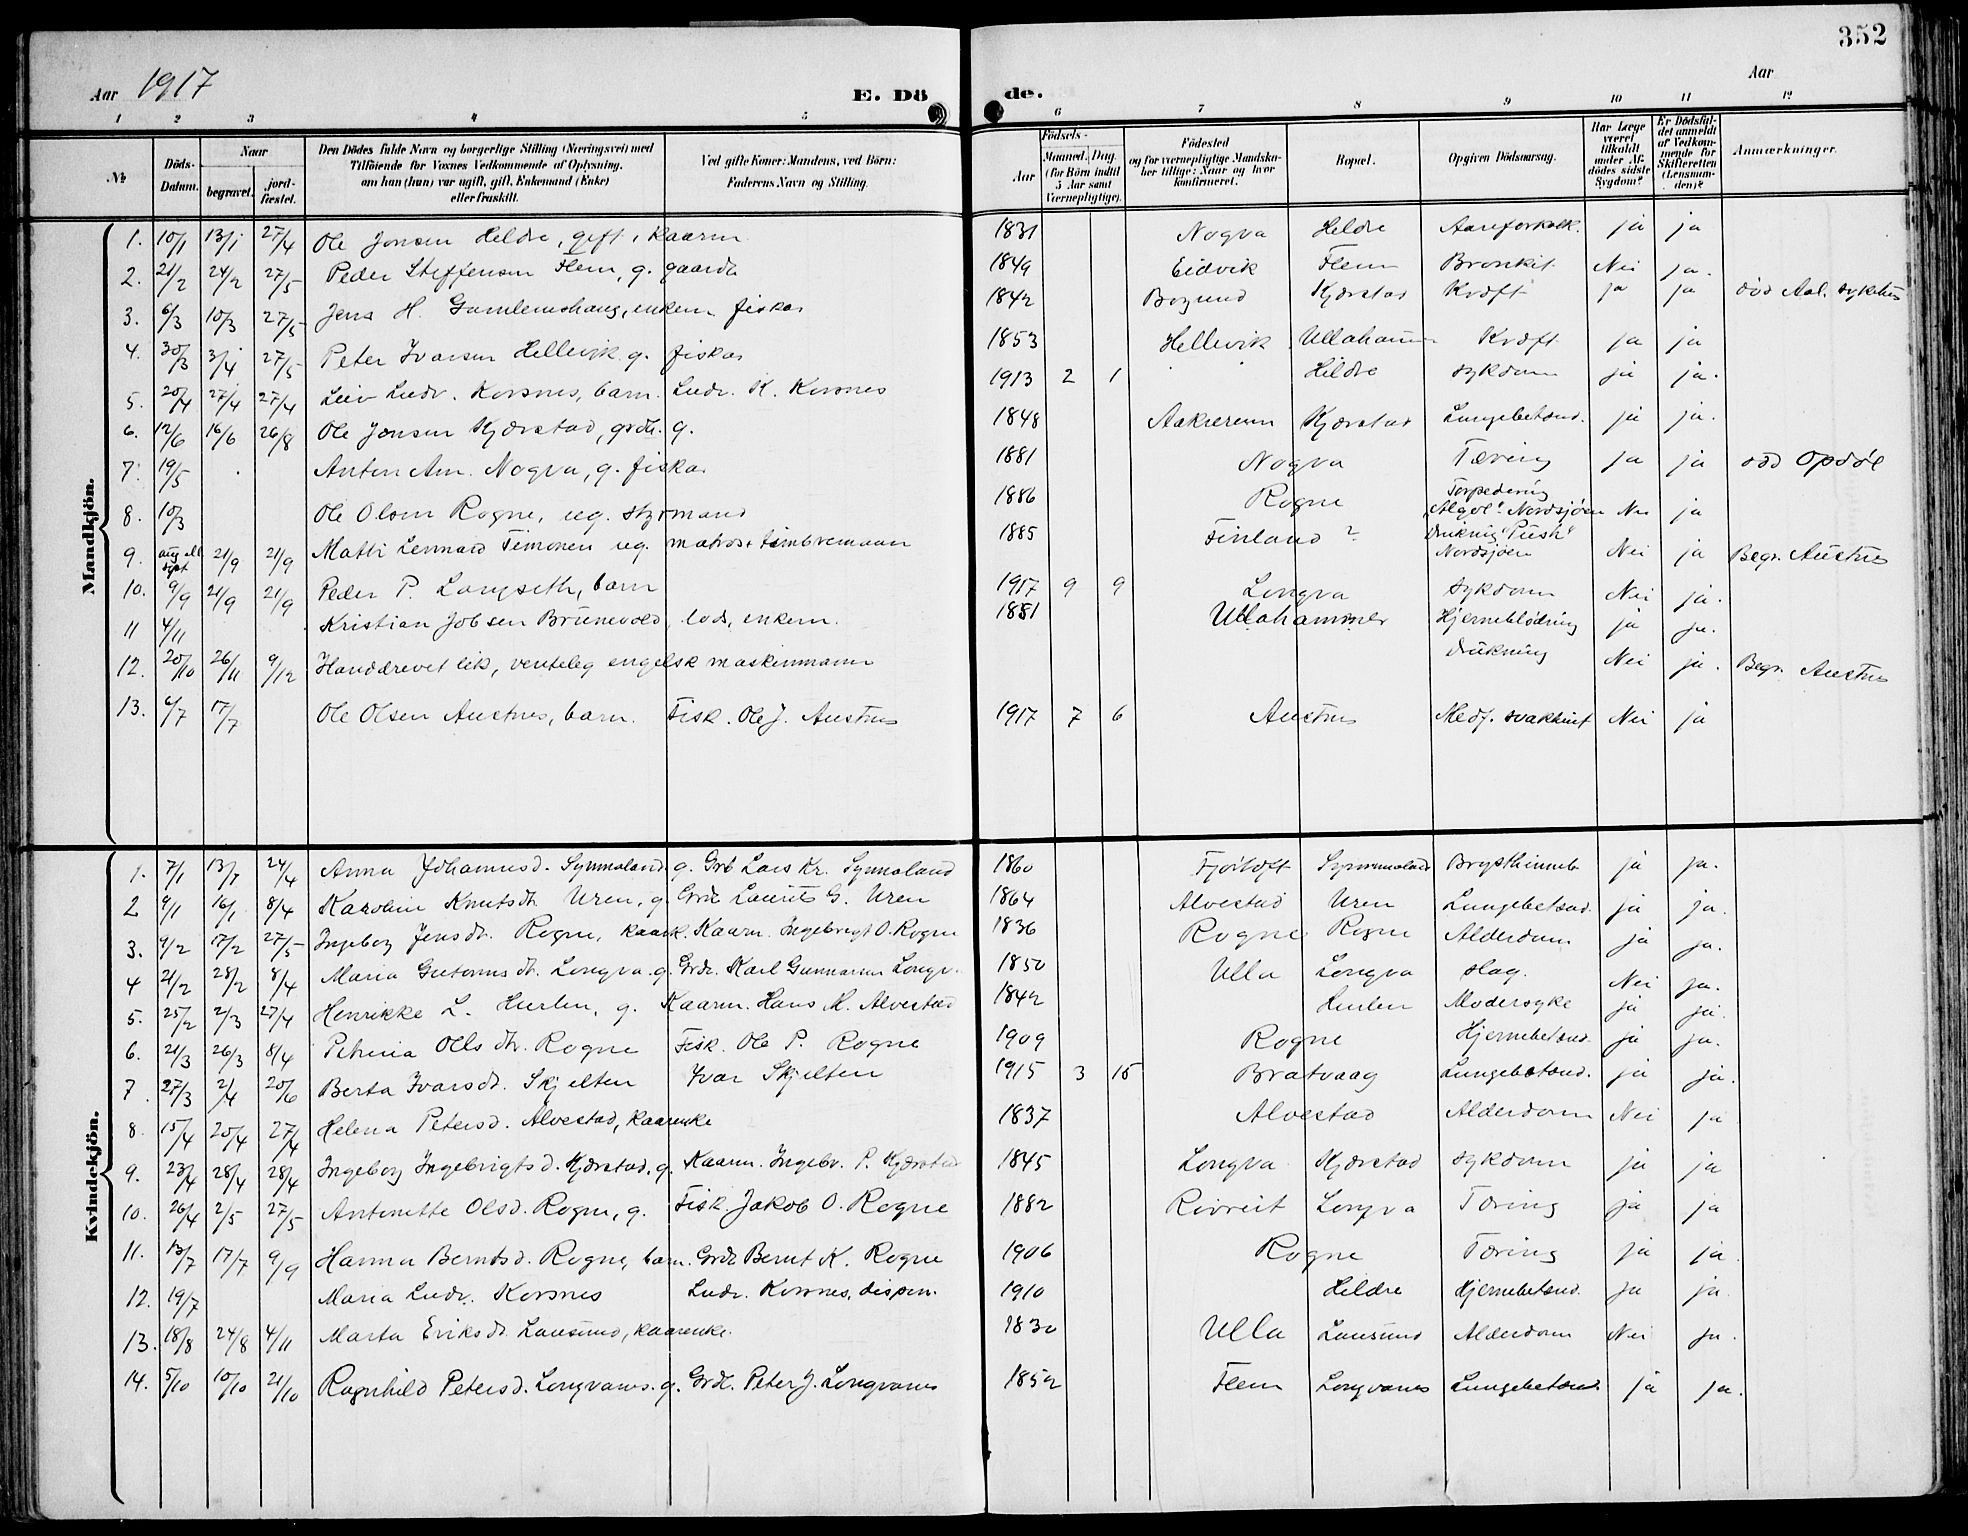 352
Aar 1917 E. Döde. Aar
1 2 3 4 5 6 7 8 9 10 11 12
№ Döds-Datum. Naar begravet. jordfæstet. Den Dödes fulde Navn og borgerlige Stilling (Næringsvei) med Tilföiende for Voxnes Vedkommende af Oplysning, om han (hun) var ugift, gift, Enkemand (Enke) eller fraskilt. Ved gifte Koner: Mandens, ved Börn: Faderens Navn og Stilling. Födsels- Aar Maaned. Dag. (for Börn indtil 5 Aar samt Værnepligtige). Födested og for værnepligtige Mandskaber tillige: Naar og hvor konfirmeret. Bopæl. Opgiven Dödsaarsag. Har Læge været tilkaldt under Afdödes sidste Sygdom? Er Dödsfaldet anmeldt af Vedkommende for Skifteretten (Lensmanden)? Anmærkninger.
Mandkjön.
1. 10/1 13/1 27/4 Ole Jonsen Hildre, gift, kaarm. 1831 Nogva Hildre Aareforkalk. ja ja
2. 21/2 24/2 27/5 Peder Steffensen Flem, g. gaardb. 1849 Eidvik Flem Bronkit. Nei ja.
3. 6/3 10/3 27/5 Jens H. Gamlemshaug, enkem. fiskar 1842 Bogund Kjærstad Kræft ja ja död Aal. sykehus
4. 30/3 3/4 27/5 Peter Ivarsen Hellevik g. fiskar 1853 Hellevik Ullahamn Kræft ja ja
5. 20/4 27/4 27/4 Leiv Ludv. Korsnes, barn. Ludv. K. Korsnes 1913 2 1 Hildre sykdom ja ja.
6. 12/6 16/6 26/8 Ole Jonsen Kjærstad, grdb. g. 1848 Kjærstad Lungebetænd. ja ja.
7. 19/5 Anton Am. Nogva, g. fiskar 1881 Nogva Tæring ja ja död Opdöl
8. 10/3 Ole Olsen Rogne, ug. styrmand 1886 Rogne Torpedering "Algol". Nordsjöen Nei ja
9. aug ell sept 21/9 21/9 Matti Lennard Timonen ug. matros + tömbremaan 1885 Finland? Drukning Nordsjöen Nei ja Begr. Austnes
10. 9/9 21/9 21/9 Peder P. Longseth, barn 1917 9 9 Longva sykdom Nei ja.
11 4/11 Kristian Jobsen Brunevold, lods, enkem. 1851 Ullahammer Hjerneblödning ja ja.
12. 20/10 26/11 9/12 Ilanddrevet lik, venteleg engelsk maskinmann Drukning Nei ja. Begr. Austnes
13. 6/7 17/7 Ole Olsen Austnes, barn. Fisk. Ole J. Austnes 1917 7 6 Austnes Medf. svakhet Nei ja
Kvindekjön.
1. 7/1 13/1 24/4 Anna Johannesd. Synnaland g. Grb Lars Kr. Synnaland 1860 Fjörtoft Synnaland Brysthinneb ja ja.
2 9/1 16/1 8/4 Karoline Knutsdt. Uren, g. Grdb Laurits G. Uren 1864 Alvestad Uren Lungebetænd. ja ja.
3. 9/2 17/2 27/5 Ingeborg Jensdt. Rogne, kaark. Kaarm. Ingebrigt O. Rogne 1836 Rogne Rogne Alderdom ja ja.
4 21/2 28/2 8/4 Maria Guttormsdt. Longva. g. Grdb. Karl Gunnarsen Longv. 1850 Ulla Longva slag. Nei ja.
5. 25/2 2/3 27/4 Henrikke L. Hurlen, g. Kaarm. Hans M. Alvestad 1842 Hurlen Modersyke ja ja.
6. 21/3 26/3 8/4 Petrina Olls dtr. Rogne Fisk. Ole P. Rogne 1909 Rogne Hjernebetænd. ja ja.
7. 27/3 2/4 20/6 Berta Ivarsdt. Skjelten Ivar Skjelten 1915 3 15 Bratvaag Lungebetænd. ja ja.
8. 15/4 20/4 27/4 Helena Petersd. Alvestad, kaarenke 1837 Alvestad Alderdom Nei ja
9. 23/4 28/4 28/4 Ingeborg Ingebrigtsd. Kjærstad. g. Kaarm. Ingebr. P. Kjærstad 1845 Longva Kjærstad sykdom ja ja
10. 26/4 2/5 27/5 Antonette Olsd. Rogne, g. Fisk. Jakob O. Rogne 1882 Longva Tæring ja ja
11. 13/7 17/7 9/9 Hanna Berntsd. Rogne, barn. Grdb Bernt K. Rogne 1906 Rogne Tæring ja ja.
12. 19/7 Maria Ludv. Korsnes Ludv. Korsnes, dispon. 1910 Hildre Hjernebetænd. ja ja.
13. 18/8 24/8 4/11 Marta Eriksdt. Lausund, kaarenke. 1830 Ulla Lausund Alderdom Nei ja.
14. 5/10 10/10 21/10 Ragnhild Petersd. Longvanes. g. Grdb. Peter J. Longvanes 1852 Flem Longvanes Lungebetænd. ja ja.